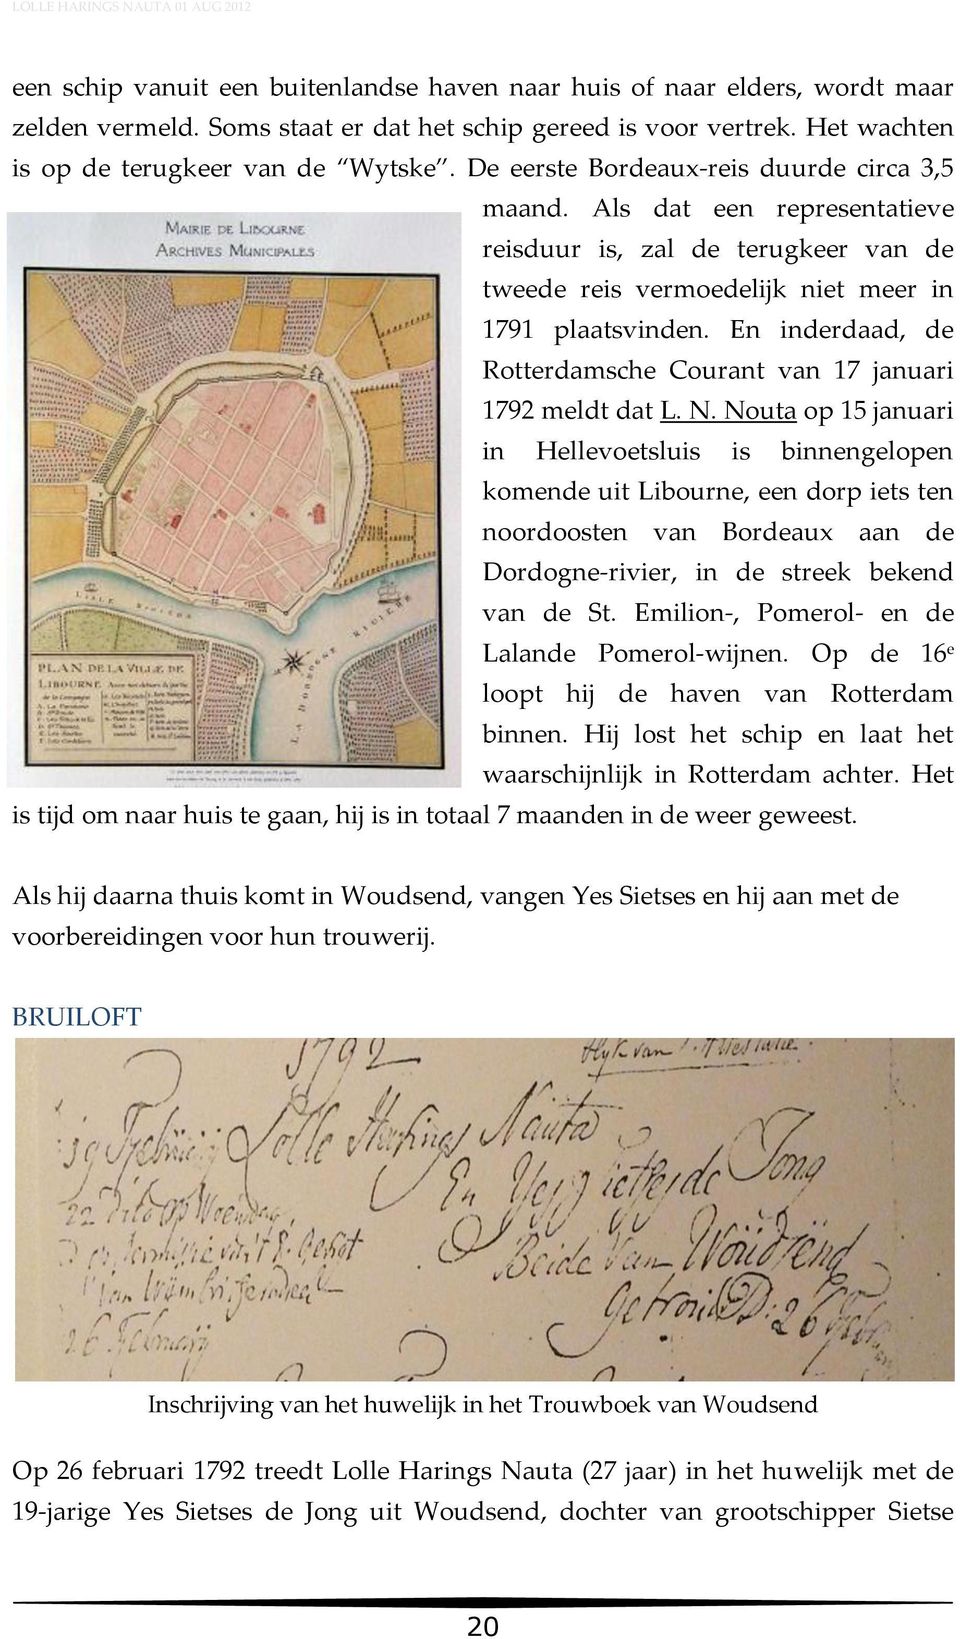 LOLLE HARINGS NAUTA 01 AUG 2012
een schip vanuit een buitenlandse haven naar huis of naar elders, wordt maar
zelden vermeld. Soms staat er dat het schip gereed is voor vertrek. Het wachten
is op de terugkeer van de “Wytske”. De eerste Bordeaux-reis duurde circa 3,5
maand. Als dat een representatieve
reisduur is, zal de terugkeer van de
tweede reis vermoedelijk niet meer in
1791 plaatsvinden. En inderdaad, de
Rotterdamsche Courant van 17 januari
1792 meldt dat L. N. Nouta op 15 januari
in Hellevoetsluis is binnengelopen
komende uit Libourne, een dorp iets ten
noordoosten van Bordeaux aan de
Dordogne-rivier, in de streek bekend
van de St. Emilion-, Pomerol- en de
Lalande Pomerol-wijnen. Op de 16e
loopt hij de haven van Rotterdam
binnen. Hij lost het schip en laat het
waarschijnlijk in Rotterdam achter. Het
is tijd om naar huis te gaan, hij is in totaal 7 maanden in de weer geweest.
MAIRIE DE LIBOURNE
ARCHIVES MUNICIPALES
LISLE RIVIERE
LA DORDOGNE RIVIERE
PLAN DE LA VILLE DE
LIBOURNE
Als hij daarna thuis komt in Woudsend, vangen Yes Sietses en hij aan met de
voorbereidingen voor hun trouwerij.
BRUILOFT
1792
19 Febrüarij Lolle Harings Naüta
En Yes Sietses de Jong
22 dito op Woensdag
Beide van Woüdsënd
26 Februarij
Getroüd D: 26 Febru
Inschrijving van het huwelijk in het Trouwboek van Woudsend
Op 26 februari 1792 treedt Lolle Harings Nauta (27 jaar) in het huwelijk met de
19-jarige Yes Sietses de Jong uit Woudsend, dochter van grootschipper Sietse
20